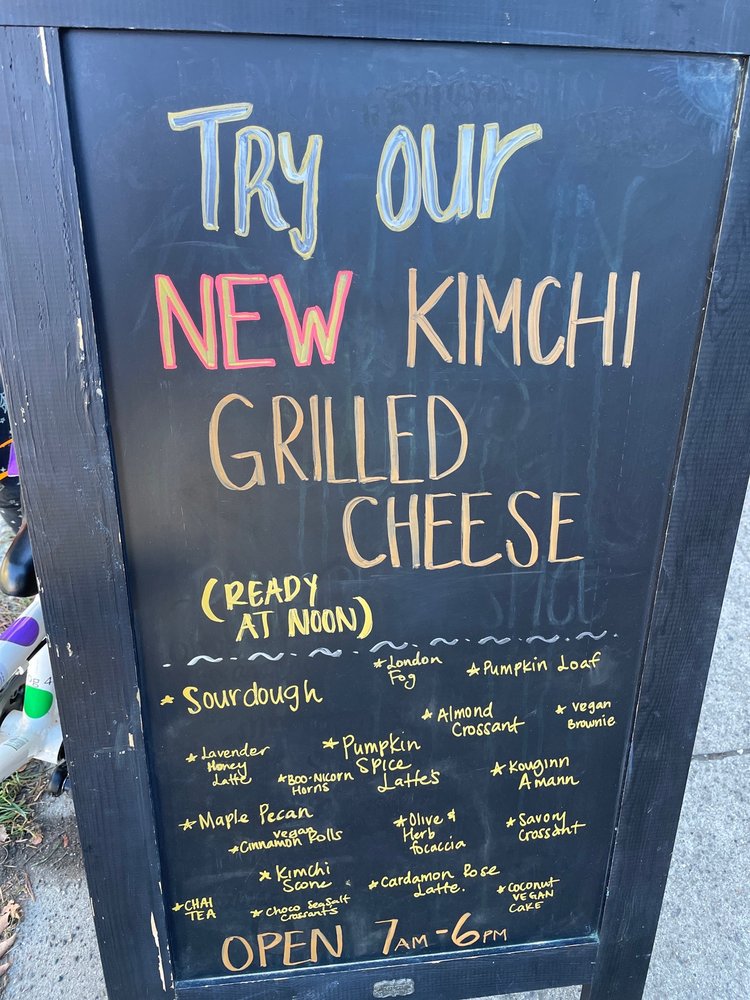 TRY OUR
NEW KIMCHI
GRILLED
CHEESE
(READY
AT NOON)
* Sourdough
* London
Fog
* Pumpkin Loaf
* Almond
Crossant
* vegan
Brownie
* Lavender
Honey
Latte
* Pumpkin
Spice
Latte's
* BOO-NICORN
Horns
* Kouginn
Amann
* Maple Pecan
* vegan
Cinnamon Rolls
* Olive &
Herb
focaccia
* Savory
Crossant
* Kimchi
Scone
* Cardamon Rose
Latte.
* CHAI
TEA
* Choco Seasalt
Crossants
* Coconut
VEGAN
CAKE
OPEN 7AM-6PM